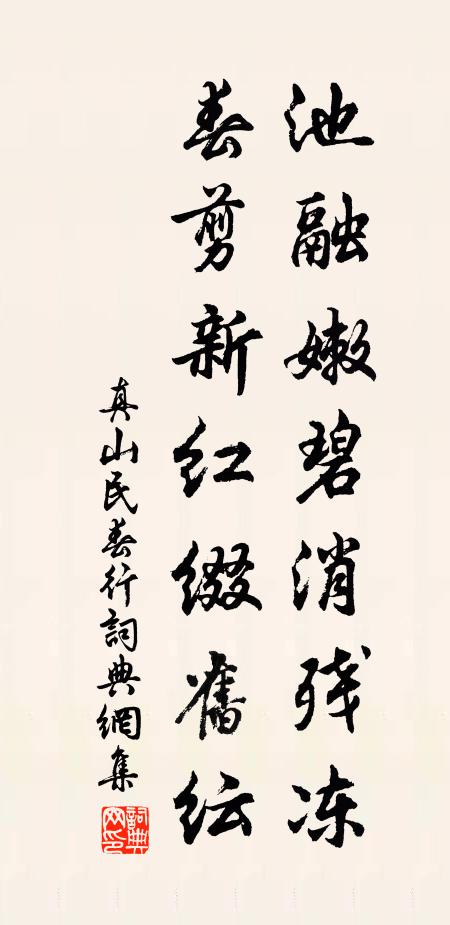 池融嫩碧消残冻
春剪新红缀旧纭
真山民春行詞典網集
詞典网印